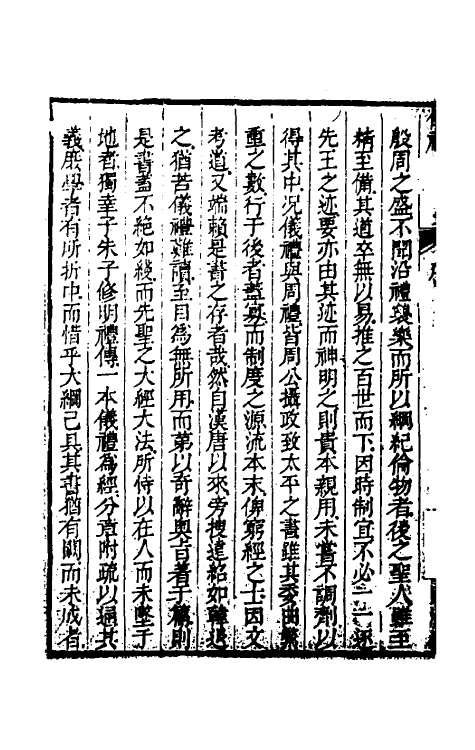 殷周之盛不聞沿禮襲樂而所以綱紀倫物者後之聖人雖至
精至備其道卒無以易推之百世而下因時制宜不必一一踵
先王之迹要亦由其迹而神明之則貴本親用未嘗不調劑以
得其中况儀禮與周禮皆周公攝政致太平之書雖其委曲繁
重之數行于後者蓋寡而制度之源流本末俾窮經之士因文
考道又端賴是書之存者哉然自漢唐以來旁搜遠紹如韓退
之猶苦儀禮難讀至目為無所用而第以奇辭奧旨著于篇則
是書蓋不絶如綫而先聖之大經大法所恃以在人而未墜于
地者獨幸子朱子修明禮傳一本儀禮為經分章附疏以通其
義庶學者有所折中而惜乎大綱已具其書猶有闕而未成者